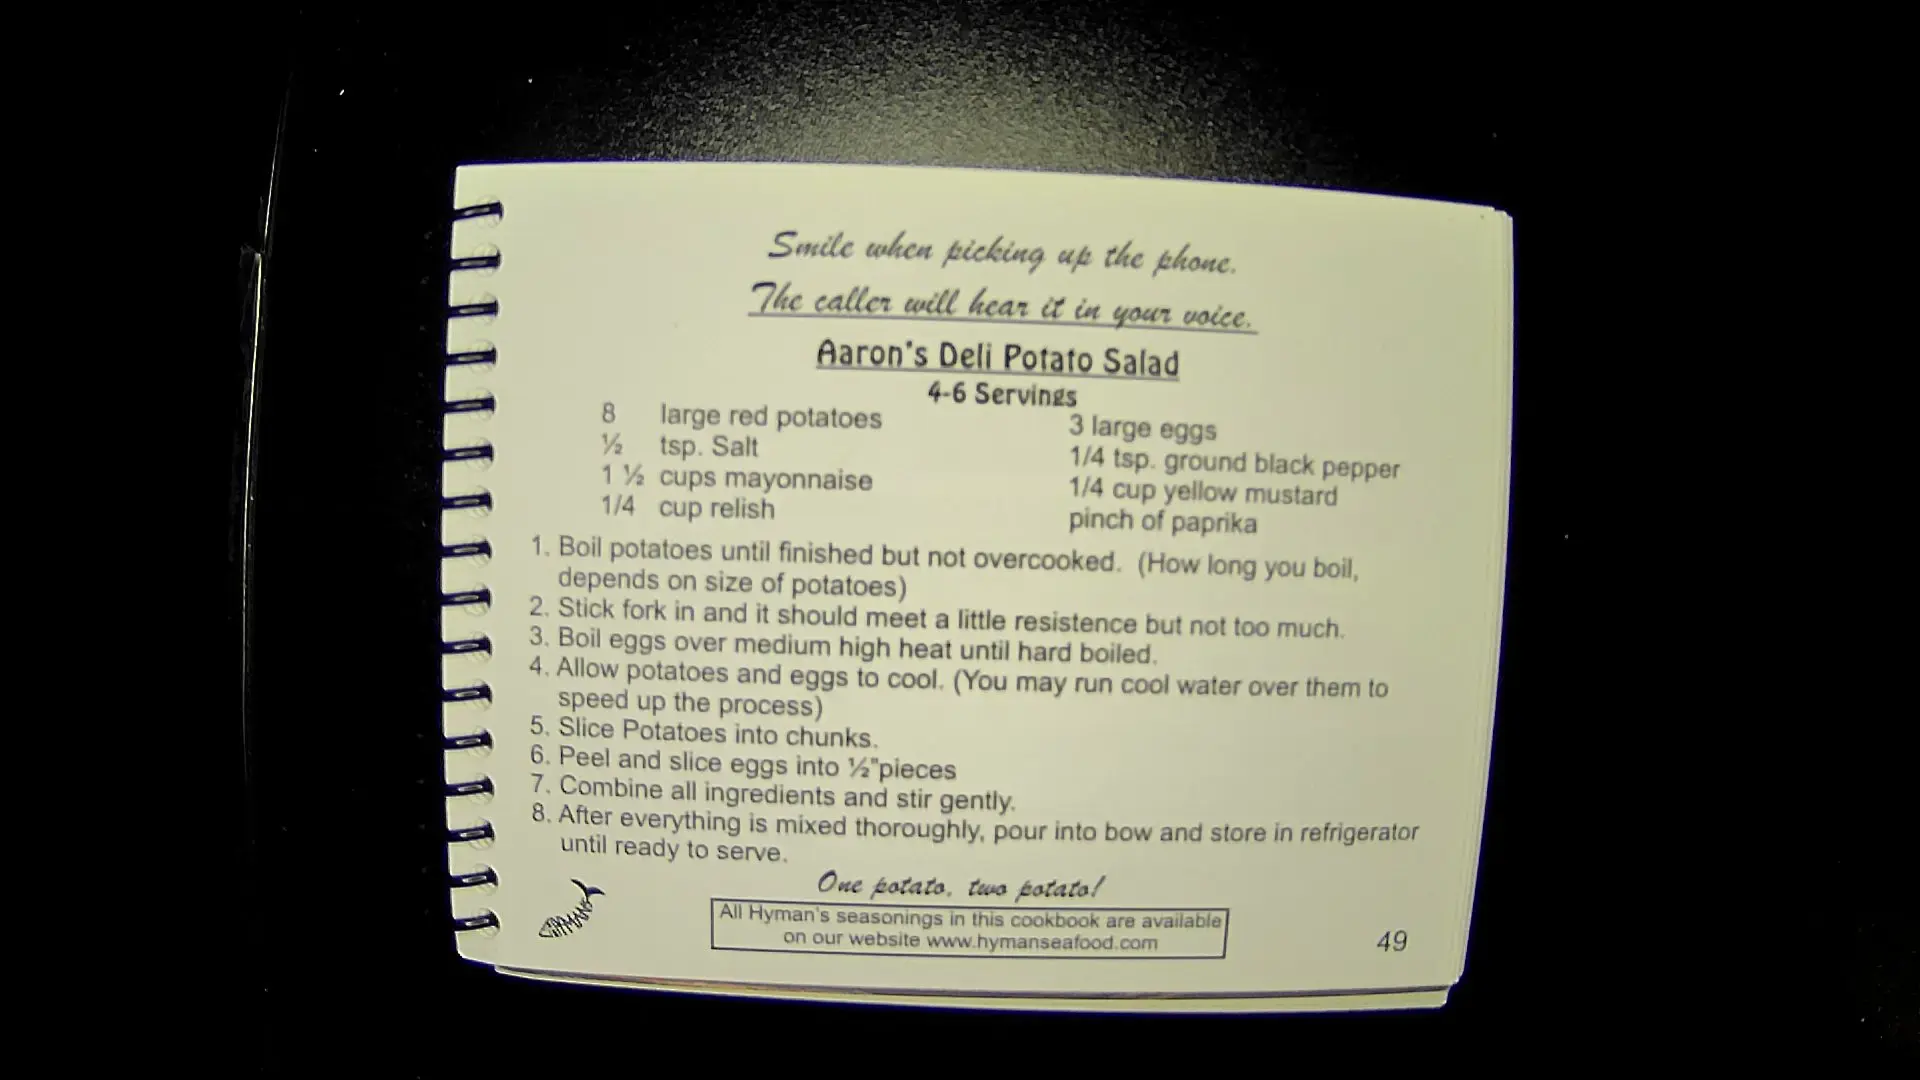 Smile when picking up the phone.
The caller will hear it in your voice.
Aaron's Deli Potato Salad
4-6 Servings
8 large red potatoes
½ tsp. Salt
1 ½ cups mayonnaise
1/4 cup relish
3 large eggs
1/4 tsp. ground black pepper
1/4 cup yellow mustard
pinch of paprika
1. Boil potatoes until finished but not overcooked. (How long you boil,
depends on size of potatoes)
2. Stick fork in and it should meet a little resistence but not too much.
3. Boil eggs over medium high heat until hard boiled.
4. Allow potatoes and eggs to cool. (You may run cool water over them to
speed up the process)
5. Slice Potatoes into chunks.
6. Peel and slice eggs into ½"pieces
7. Combine all ingredients and stir gently.
8. After everything is mixed thoroughly, pour into bow and store in refrigerator
until ready to serve.
One potato, two potato!
HYMANS
All Hyman's seasonings in this cookbook are available
on our website www.hymanseafood.com
49